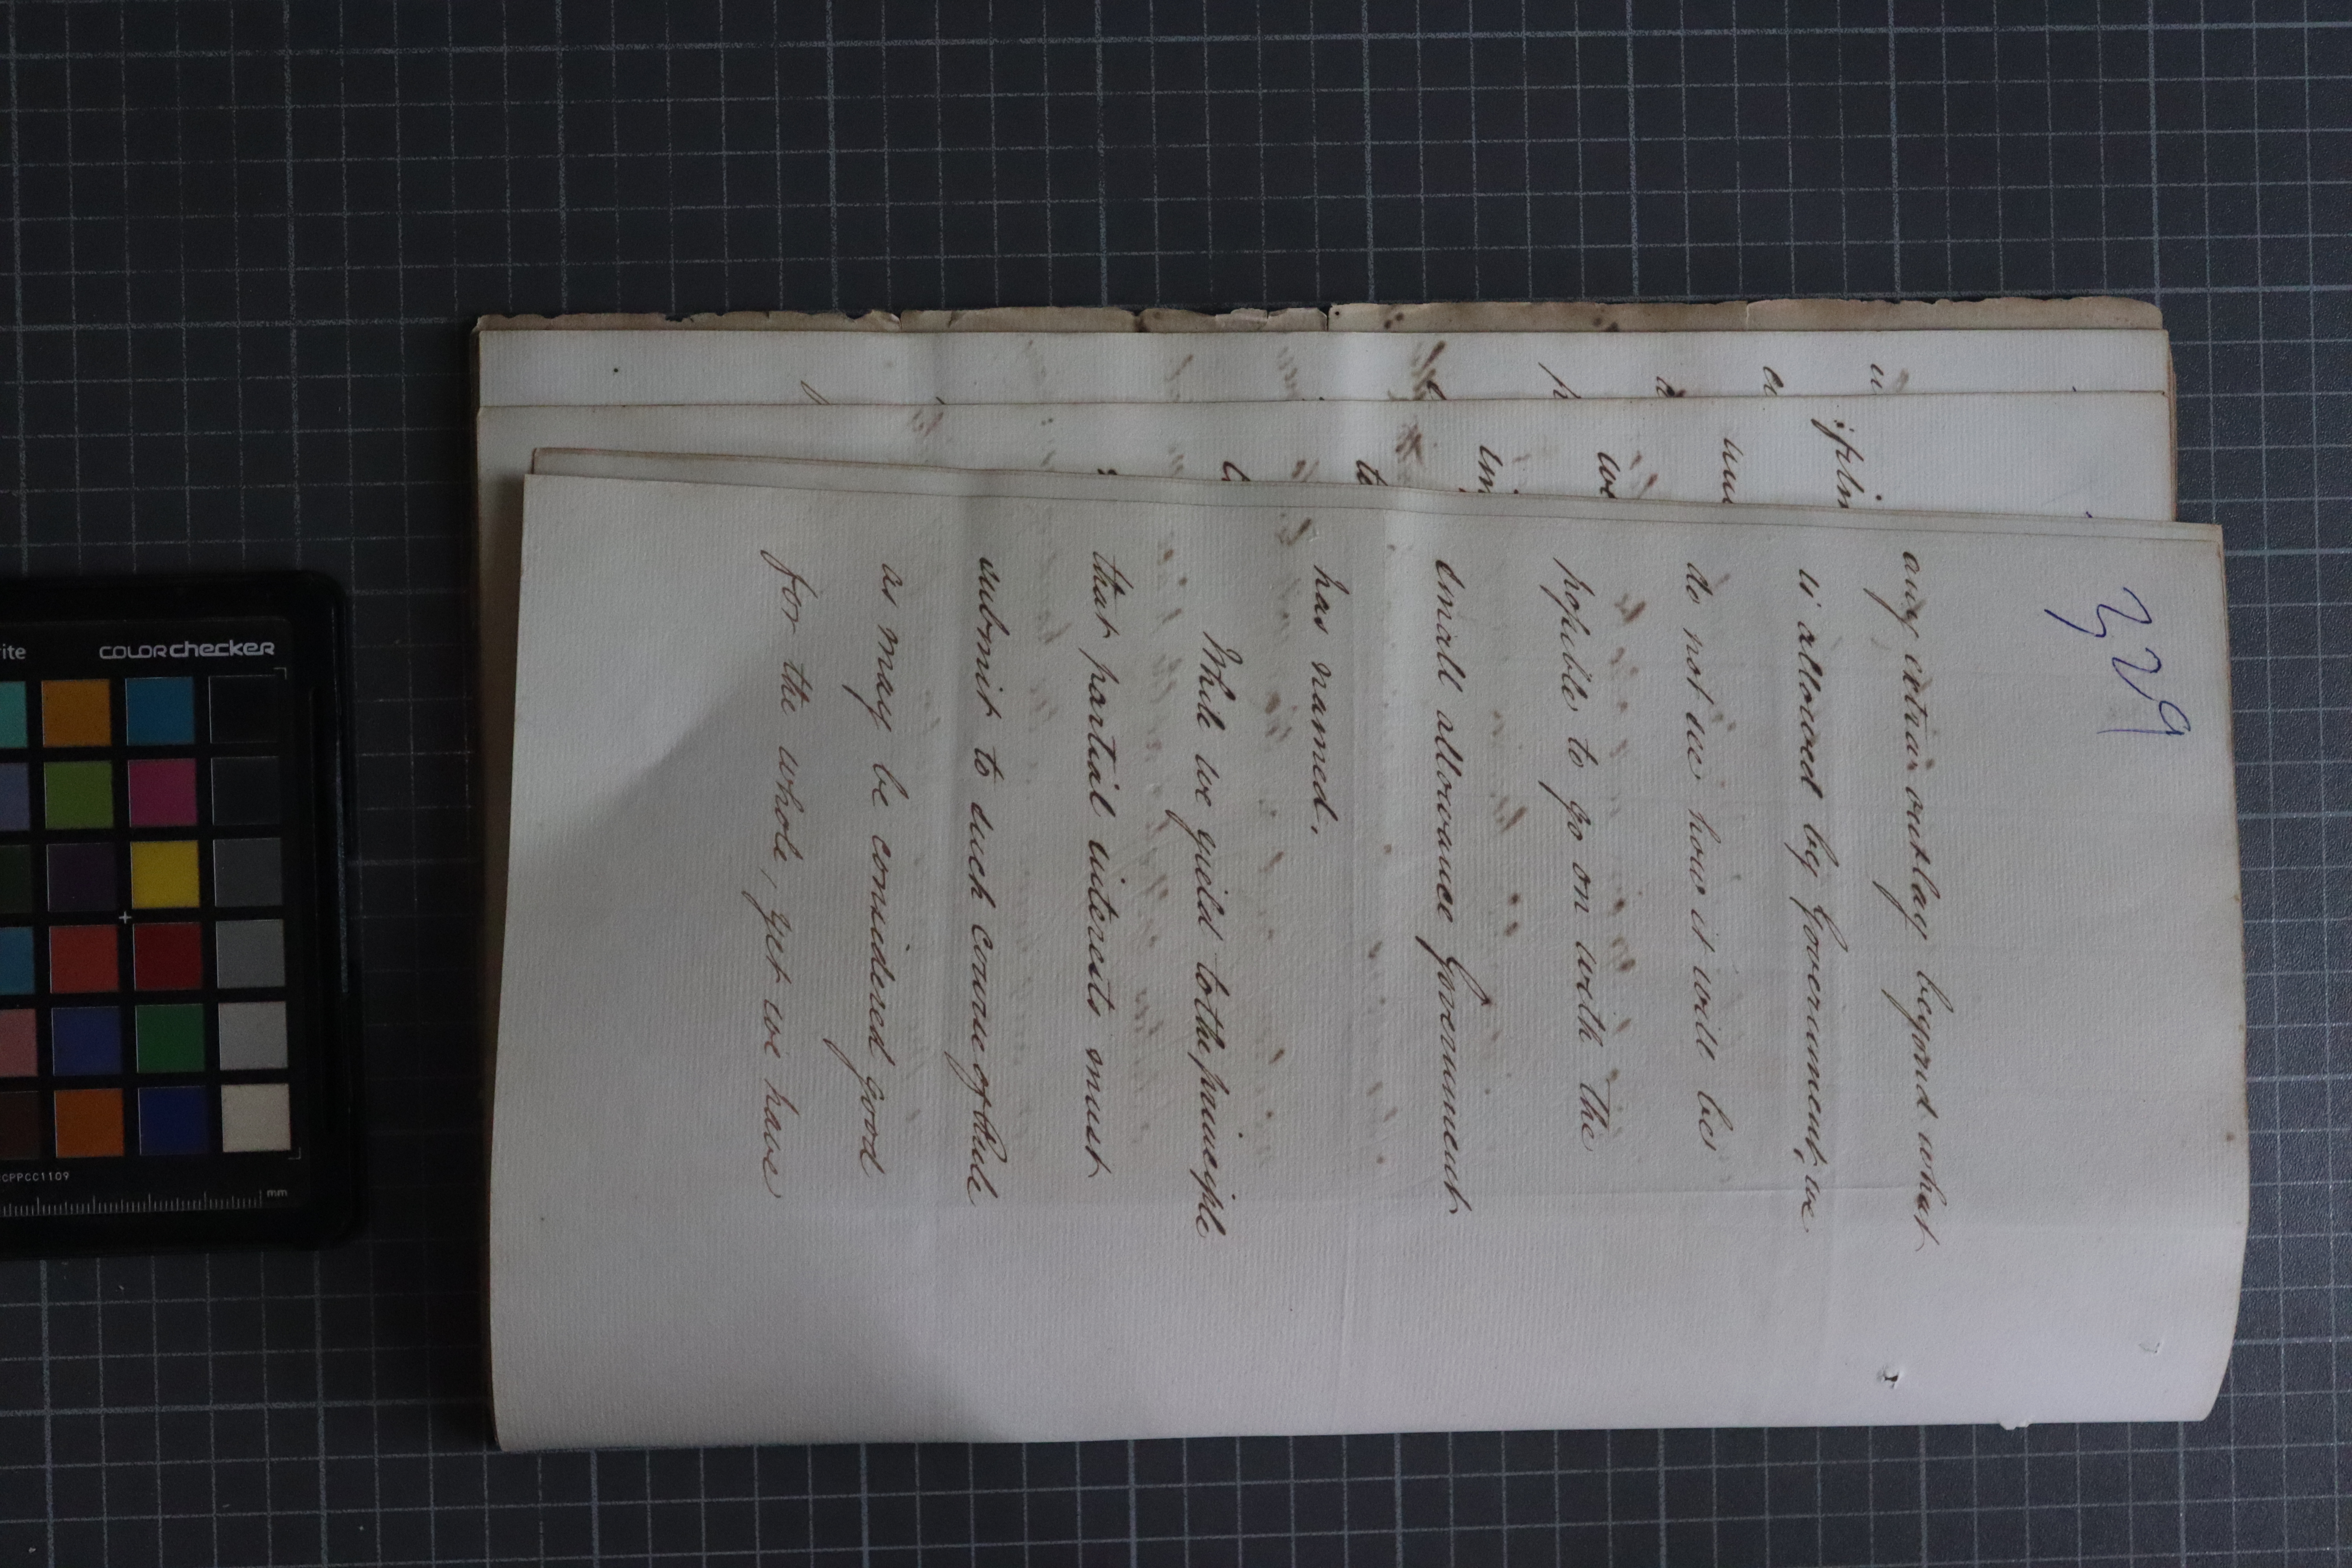 329
any extra outlay beyond what
is allowed by Government, we
do not see how it will be
possible to go on with the
small allowance Government
has named.
While we yield to the principle
that partial interests must
submit to such course of Rule
as may be considered good
for the whole, yet we have
colorchecker
mm